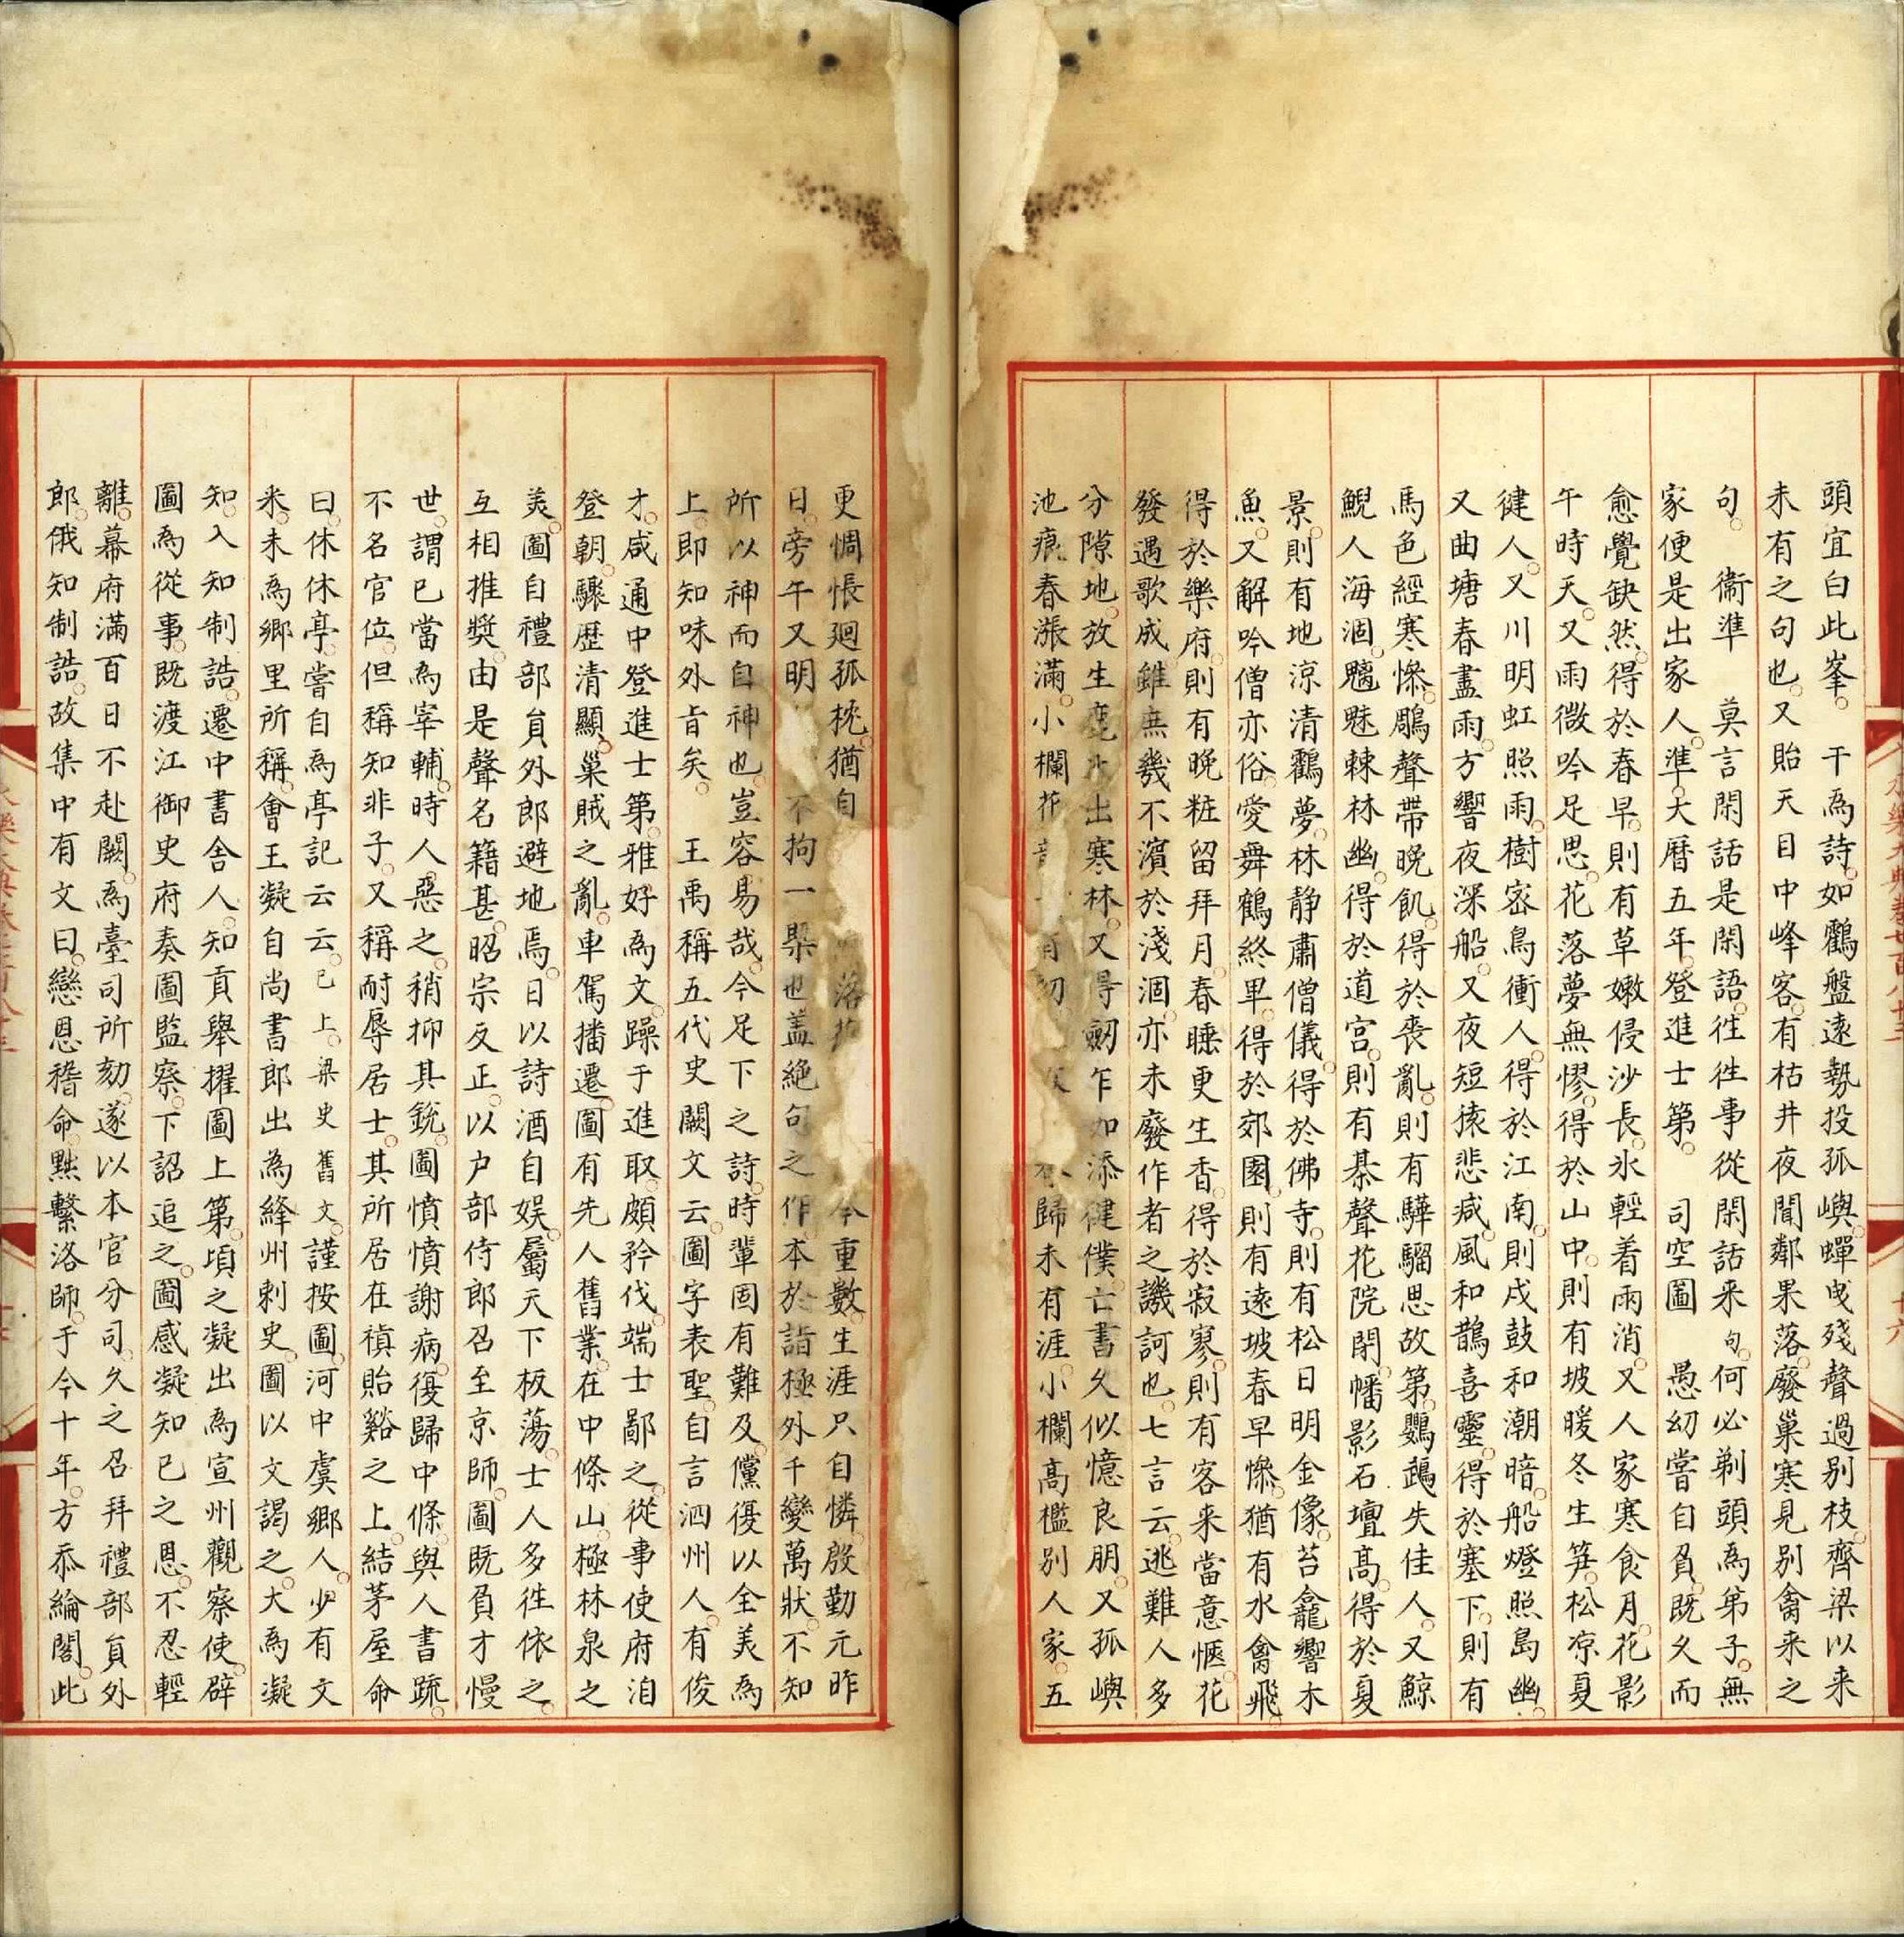 頭宜白此峯。 干為詩。如鸛盤遠勢投孤嶼。蟬曳殘聲過別枝。齊梁以来
未有之句也。又貽天目中峰客。有枯井夜聞鄰果落。廢巢寒見別禽来之
句。 衛準 莫言閑話是閑語。徃徃事從閑話来。句。何必剃頭為弟子。無
家便是出家人。準。大曆五年。登進士第。 司空圖 愚幼嘗自負。既久而
愈覺缺然。得於春早。則有草嫩侵沙長。氷輕着雨消。又人家寒食月。花影
午時天。又雨微吟足思。花落夢無憀。得於山中。則有坡暖冬生笋。松凉夏
健人。又川明虹照雨。樹密鳥衝人。得於江南。則戍鼓和潮暗。船燈照島幽。
又曲塘春盡雨。方響夜深船。又夜短猿悲減。風和鵲喜靈。得於塞下。則有
馬色經寒慘。鵰聲帶晚飢。得於喪亂。則有驊騮思故第。鸚鵡失佳人。又鯨
鯢人海涸。魑魅棘林幽。得於道宮。則有棊聲花院閉。幡影石壇高。得於夏
景。則有地涼清鸛夢。林静肅僧儀。得於佛寺。則有松日明金像。苔龕響木
魚。又解吟僧亦俗。愛舞鶴終卑。得於郊園。則有遠坡春早慘。猶有水禽飛。
得於樂府。則有晚粧留拜月。春睡更生香。得於寂寥。則有客来當意愜。花
發遇歌成。雖庶幾不濱於淺涸。亦未廢作者之譏訶也。七言云。逃難人多
分隙地。放生鹿出寒林。又得劒乍如添健僕。亡書久似憶良朋。又孤嶼
池痕春漲滿。小欄花歸未有涯。小欄高檻別人家。五
更惆悵廻孤枕。猶自落今重數。生涯只自憐。殷勤元昨
日。旁午又明不拘一槩也。盖絶句之作。本於詣極。外千變萬狀。不知
所以神而自神也。豈容易哉。今足下之詩。時輩固有難及。儻復以全美為
上。即知味外旨矣。 王禹稱五代史闕文云。圖字表聖。自言泗州人。有俊
才。咸通中登進士第。雅好為文。躁于進取。頗矜伐。端士鄙之。從事使府洎
登朝。驟歷清顯。巢賊之亂。車駕播遷。圖有先人舊業。在中條山。極林泉之
美。圖自禮部員外郎避地焉。日以詩酒自娱。屬天下板蕩。士人多徃依之。
互相推奬。由是聲名籍甚。昭宗反正。以户部侍郎召至京師。圖既負才慢
世。謂已當為宰輔。時人惡之。稍抑其銳。圖憤憤謝病。復歸中條。與人書疏。
不名官位。但稱知非子。又稱耐辱居士。其所居在禎貽谿之上。結茅屋命
曰。休休亭。嘗自為亭記云云。已上。梁史舊文。謹按圖。河中虞鄉人。少有文
来。未為鄉里所稱。會王凝自尚書郎出為絳州刺史。圖以文謁之。大為凝
知。入知制誥。遷中書舍人。知貢舉擢圖上第。頃之凝出為宣州觀察使。辟
圖為從事。既渡江御史府奏圖監察。下詔追之。圖感凝知已之恩。不忍輕
離。幕府滿百日不赴闕。為臺司所劾。遂以本官分司。久之召拜禮部員外
郎。俄知制誥。故集中有文曰。戀恩稽命。黜繫洛師。于今十年。方忝綸閣。此